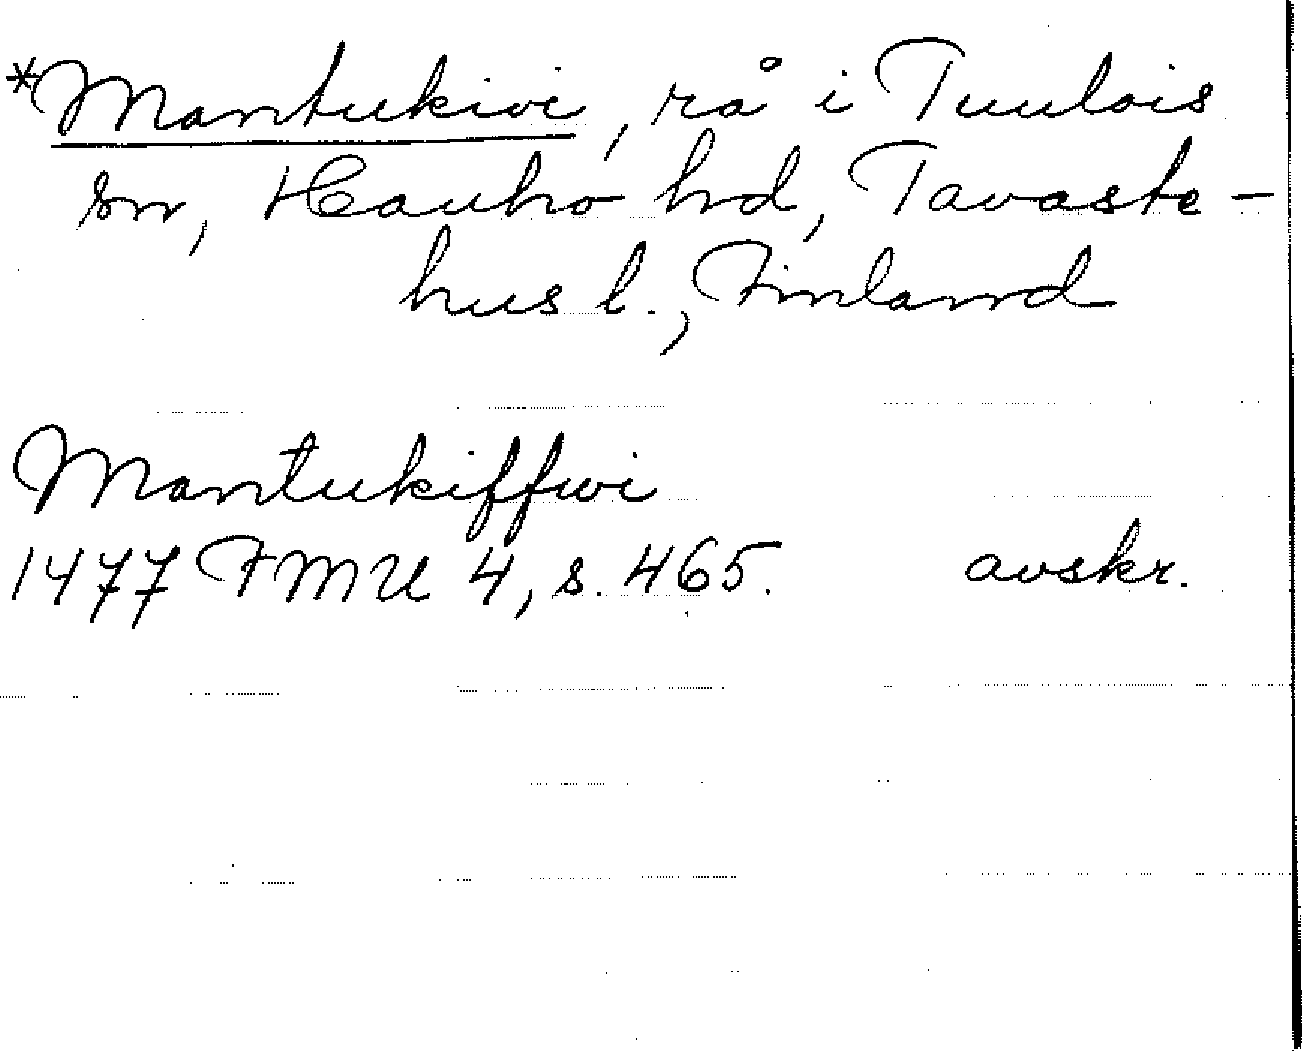 *Mantukivi, rå i Tuulois
sn, Hauho hd, Tavaste-
hus l., Finland
Mantukiffwi
1477 FMU 4, s. 465. avskr.